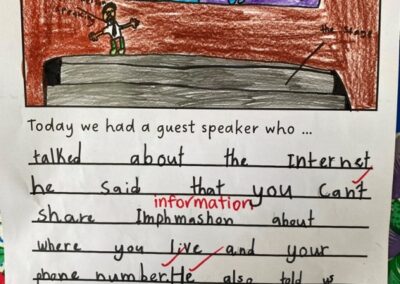 the stage
Today we had a guest speaker who ...
talked about the Internet
he said that you Can't
information
share Imphmashon about
where you live and your
phone number. He also told us